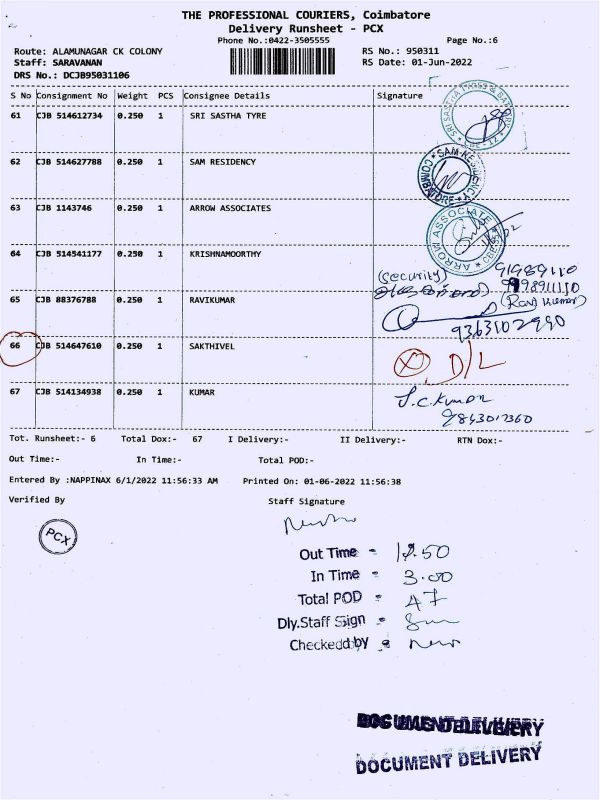 THE PROFESSIONAL COURIERS, Coimbatore
Delivery Runsheet - PCX
Phone No.:0422-3505555
Page No.:6
Route: ALAMUNAGAR CK COLONY
RS No.: 950311
Staff: SARAVANAN
RS Date: 01-Jun-2022
DRS No.: DCJB95031106
S No Consignment No Weight PCS Consignee Details Signature
61 CJB 514612734 0.250 1 SRI SASTHA TYRE
62 CJB 514627788 0.250 1 SAM RESIDENCY
COIMBATORE
63 CJB 1143746 0.250 1 ARROW ASSOCIATES
ARROW ASSOCIATES
64 CJB 514541177 0.250 1 KRISHNAMOORTHY
(security)
65 CJB 88376788 0.250 1 RAVIKUMAR
(Ravi Kumar)
9363102990
66 CJB 514647610 0.250 1 SAKTHIVEL
X D/L
67 CJB 514134938 0.250 1 KUMAR
Tot. Runsheet:- 6 Total Dox:- 67 I Delivery:- II Delivery:- RTN Dox:-
Out Time:- In Time:- Total POD:-
Entered By :NAPPINAX 6/1/2022 11:56:33 AM Printed On: 01-06-2022 11:56:38
Verified By Staff Signature
PCX
Out Time - 12.50
In Time - 3.00
Total POD - 47
Dly.Staff Sign -
Checked by
DOCUMENT DELIVERY
DOCUMENT DELIVERY